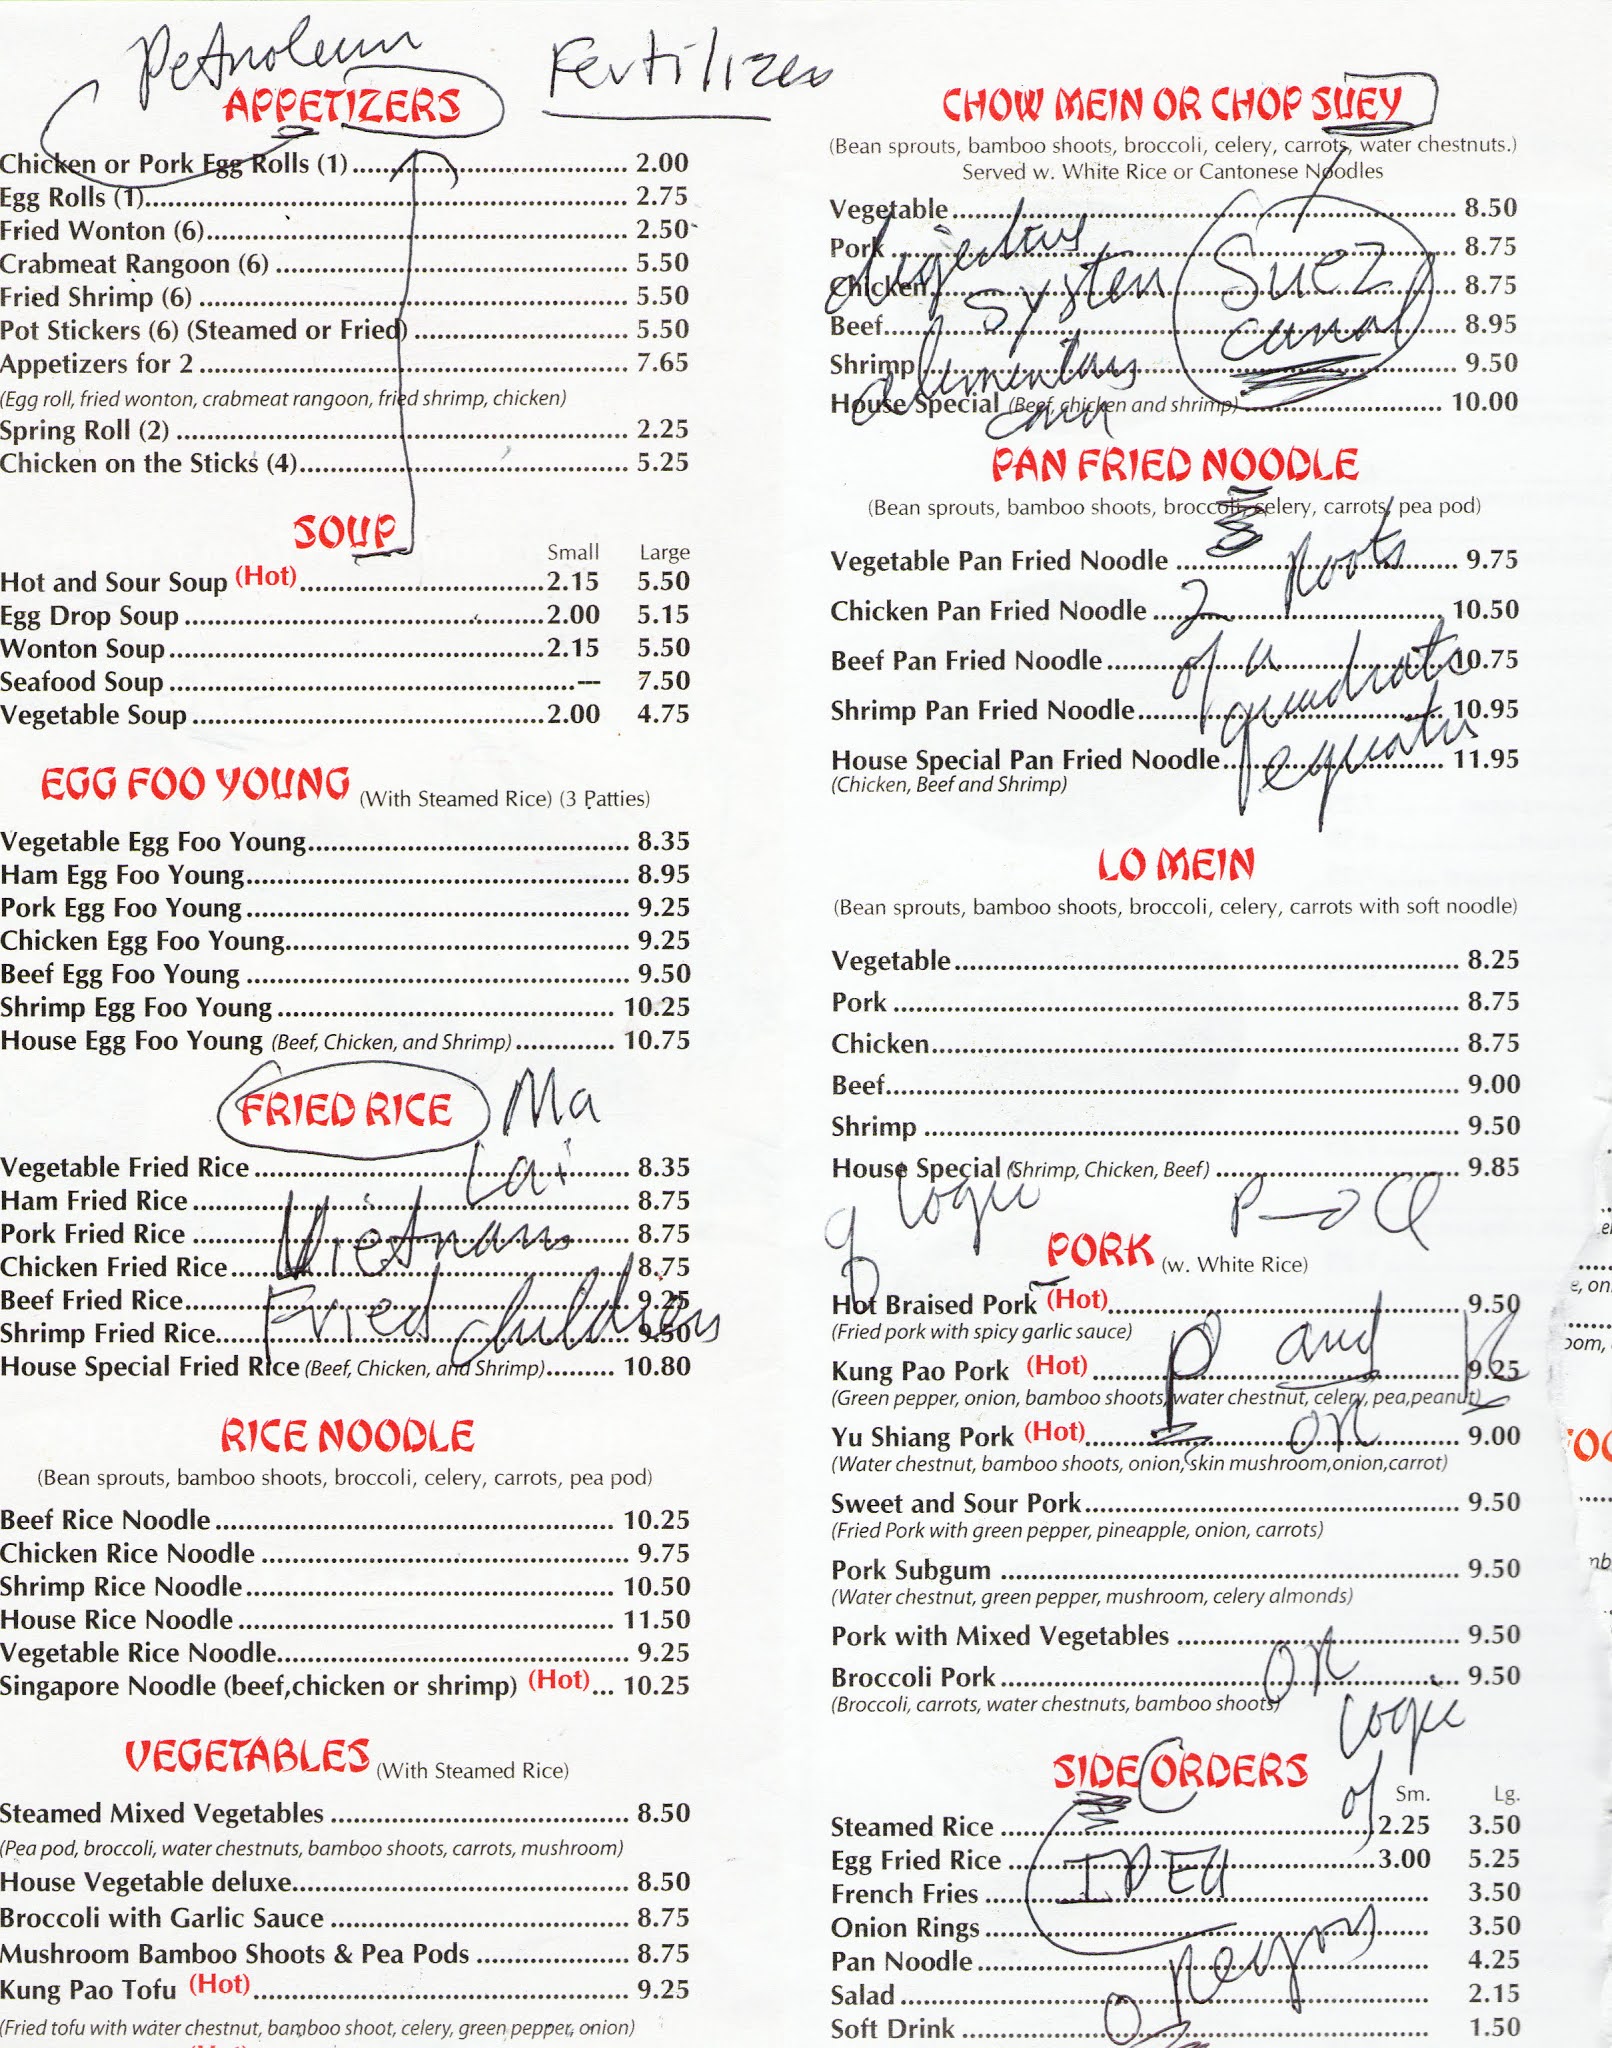 Petroleum
Fertilizer
APPETIZERS
Chicken or Pork Egg Rolls (1) 2.00
Egg Rolls (1) 2.75
Fried Wonton (6) 2.50
Crabmeat Rangoon (6) 5.50
Fried Shrimp (6) 5.50
Pot Stickers (6) (Steamed or Fried) 5.50
Appetizers for 2 7.65
(Egg roll, fried wonton, crabmeat rangoon, fried shrimp, chicken)
Spring Roll (2) 2.25
Chicken on the Sticks (4) 5.25
SOUP
Small Large
Hot and Sour Soup (Hot) 2.15 5.50
Egg Drop Soup 2.00 5.15
Wonton Soup 2.15 5.50
Seafood Soup --- 7.50
Vegetable Soup 2.00 4.75
EGG FOO YOUNG (With Steamed Rice) (3 Patties)
Vegetable Egg Foo Young 8.35
Ham Egg Foo Young 8.95
Pork Egg Foo Young 9.25
Chicken Egg Foo Young 9.25
Beef Egg Foo Young 9.50
Shrimp Egg Foo Young 10.25
House Egg Foo Young (Beef, Chicken, and Shrimp) 10.75
FRIED RICE
Ma
Lai
Vietnam
Fried children
Vegetable Fried Rice 8.35
Ham Fried Rice 8.75
Pork Fried Rice 8.75
Chicken Fried Rice 8.75
Beef Fried Rice 9.25
Shrimp Fried Rice 9.50
House Special Fried Rice (Beef, Chicken, and Shrimp) 10.80
RICE NOODLE
(Bean sprouts, bamboo shoots, broccoli, celery, carrots, pea pod)
Beef Rice Noodle 10.25
Chicken Rice Noodle 9.75
Shrimp Rice Noodle 10.50
House Rice Noodle 11.50
Vegetable Rice Noodle 9.25
Singapore Noodle (beef,chicken or shrimp) (Hot) 10.25
VEGETABLES (With Steamed Rice)
Steamed Mixed Vegetables 8.50
(Pea pod, broccoli, water chestnuts, bamboo shoots, carrots, mushroom)
House Vegetable deluxe 8.50
Broccoli with Garlic Sauce 8.75
Mushroom Bamboo Shoots & Pea Pods 8.75
Kung Pao Tofu (Hot) 9.25
(Fried tofu with water chestnut, bamboo shoot, celery, green pepper, onion)
CHOW MEIN OR CHOP SUEY
(Bean sprouts, bamboo shoots, broccoli, celery, carrots, water chestnuts.)
Served w. White Rice or Cantonese Noodles
Vegetable 8.50
Pork 8.75
Chicken 8.75
Beef 8.95
Shrimp 9.50
House Special (Beef, chicken and shrimp) 10.00
system
Suez
canal
PAN FRIED NOODLE
(Bean sprouts, bamboo shoots, broccoli, celery, carrots, pea pod)
Vegetable Pan Fried Noodle 9.75
Chicken Pan Fried Noodle 10.50
Beef Pan Fried Noodle 10.75
Shrimp Pan Fried Noodle 10.95
House Special Pan Fried Noodle 11.95
(Chicken, Beef and Shrimp)
2 Roots
of a
quadratic
LO MEIN
(Bean sprouts, bamboo shoots, broccoli, celery, carrots with soft noodle)
Vegetable 8.25
Pork 8.75
Chicken 8.75
Beef 9.00
Shrimp 9.50
House Special (Shrimp, Chicken, Beef) 9.85
logic
PORK (w. White Rice)
Hot Braised Pork (Hot) 9.50
(Fried pork with spicy garlic sauce)
Kung Pao Pork (Hot) 9.25
(Green pepper, onion, bamboo shoots, water chestnut, celery, pea,peanut)
Yu Shiang Pork (Hot) 9.00
(Water chestnut, bamboo shoots, onion, skin mushroom,onion,carrot)
Sweet and Sour Pork 9.50
(Fried Pork with green pepper, pineapple, onion, carrots)
Pork Subgum 9.50
(Water chestnut, green pepper, mushroom, celery almonds)
Pork with Mixed Vegetables 9.50
Broccoli Pork 9.50
(Broccoli, carrots, water chestnuts, bamboo shoots)
P and R
OR
OR
logic
of
SIDE ORDERS
Sm. Lg.
Steamed Rice 2.25 3.50
Egg Fried Rice 3.00 5.25
French Fries 3.50
Onion Rings 3.50
Pan Noodle 4.25
Salad 2.15
Soft Drink 1.50
IDEA